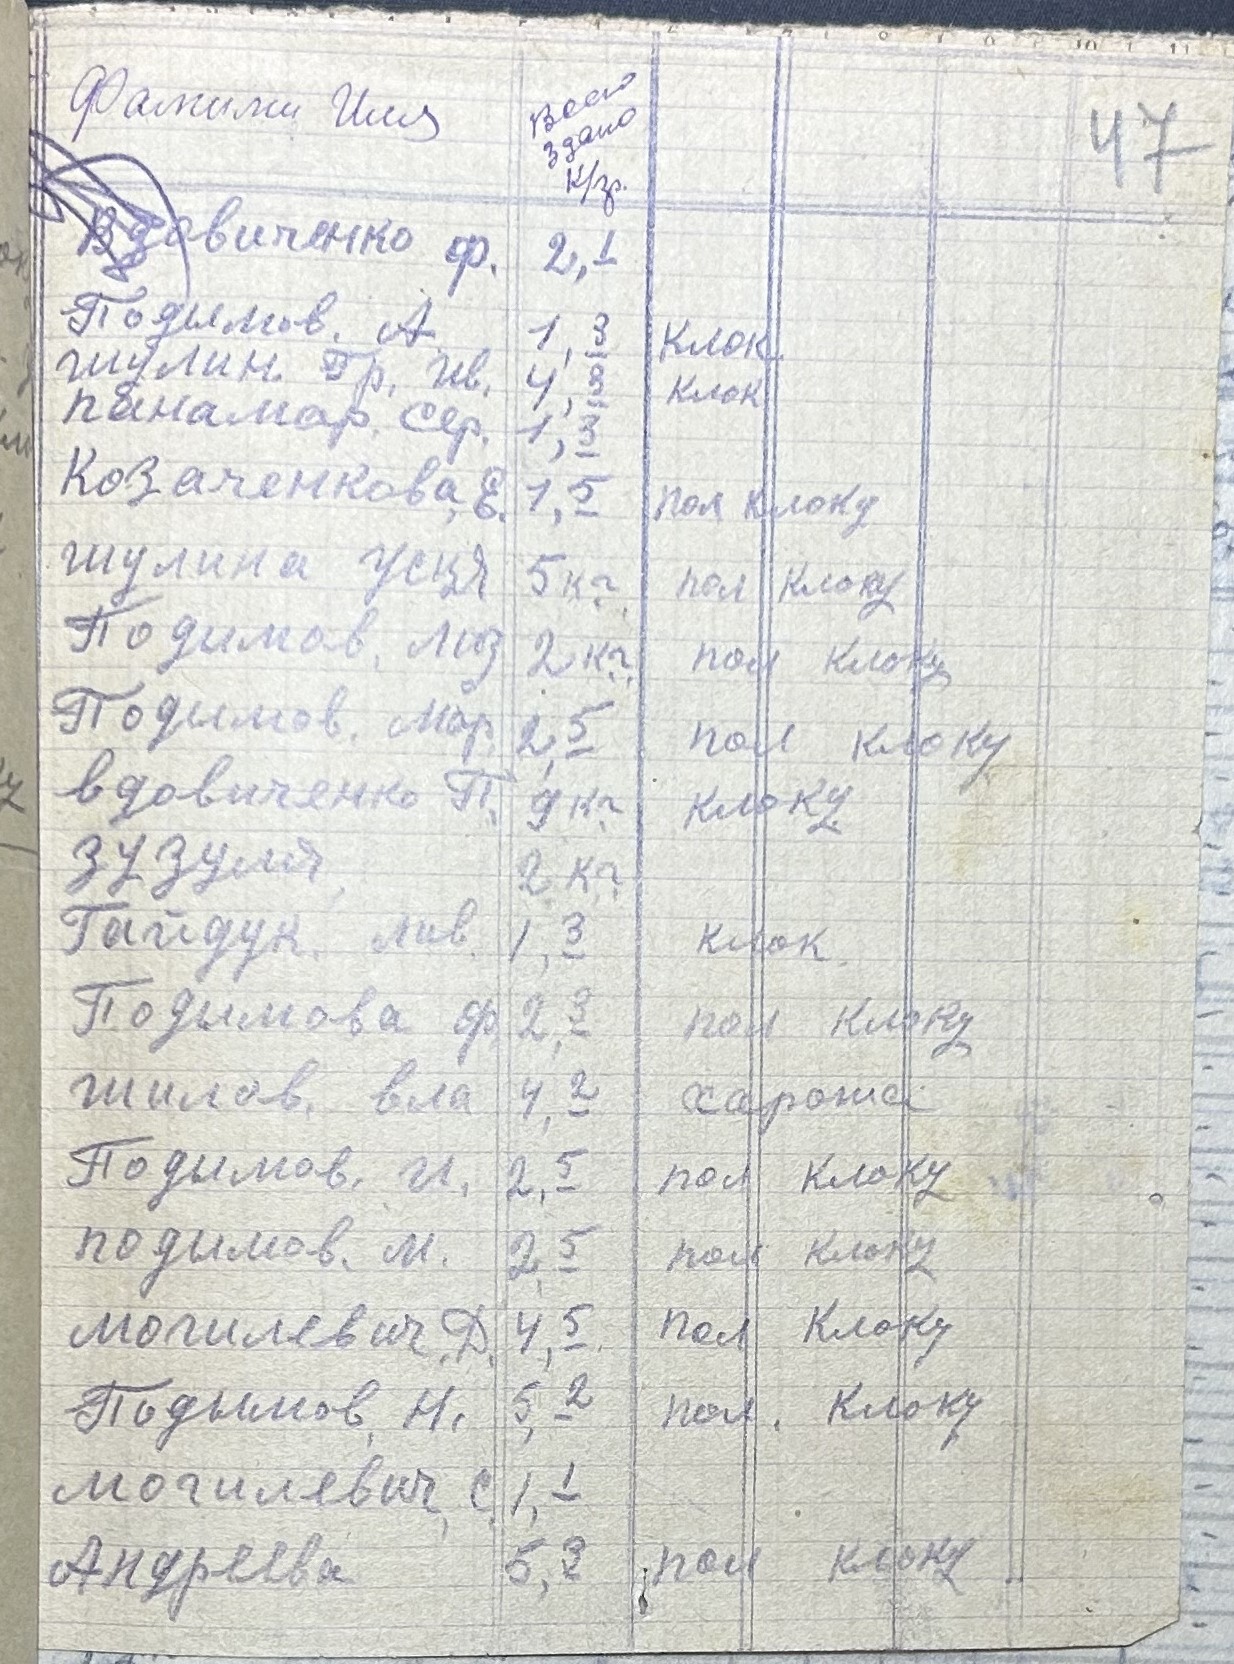 Фамили Имя Всего здано к/гр. 47
Вдовиченко Ф. 2,1
Подымов. А. 1,3 Клок.
шулин. Гр. Ив. 4,3 клок
панамар. Сер. 1,3
Козаченкова, Е. 1,5 пол клоку
шулина 5 кг. пол клоку
Подимов. люз 2 кг. пол клоку
Подымов. мар. 2,5 пол клоку
вдовиченко П. 9 кг клоку
зузуля, 2 кг.
Гайдук. лив. 1,3 клок.
Подымова ф. 2,3 пол клоку
шилов. вла 4,2 харошае
Подымов. И. 2,5 пол клоку
подымов. М. 2,5 пол клоку
могилевич, Д. 4,5 пол клоку
Подымов, Н. 5,2 пол. клоку
могилевич, С. 1,1
Андреева 5,3 пол клоку